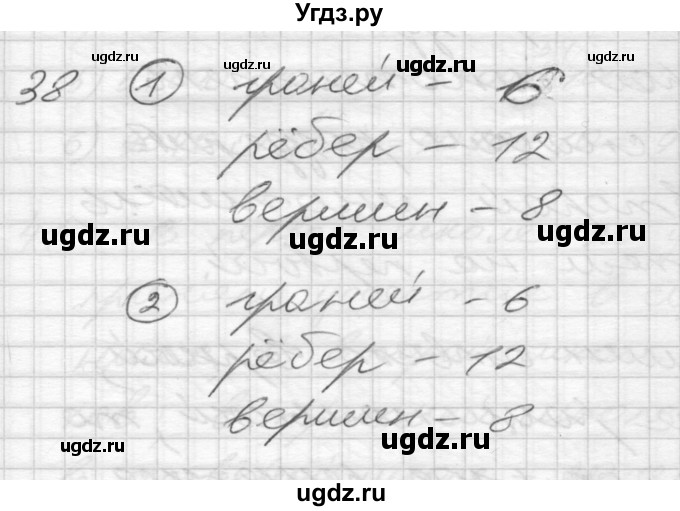 Угдз.ру
ugdz.ru ugdz.ru ugdz.ru
38 ① граней - 6
рёбер - 12
вершин - 8
ugdz.ru ugdz.ru ugdz.ru
② граней - 6
рёбер - 12
вершин - 8
ugdz.ru ugdz.ru
ugdz.ru